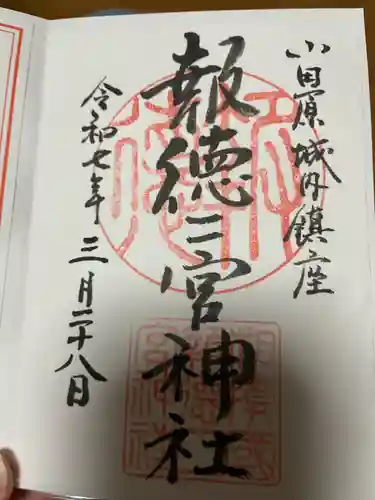 小田原城内鎮座
報徳二宮神社
令和七年三月二十八日